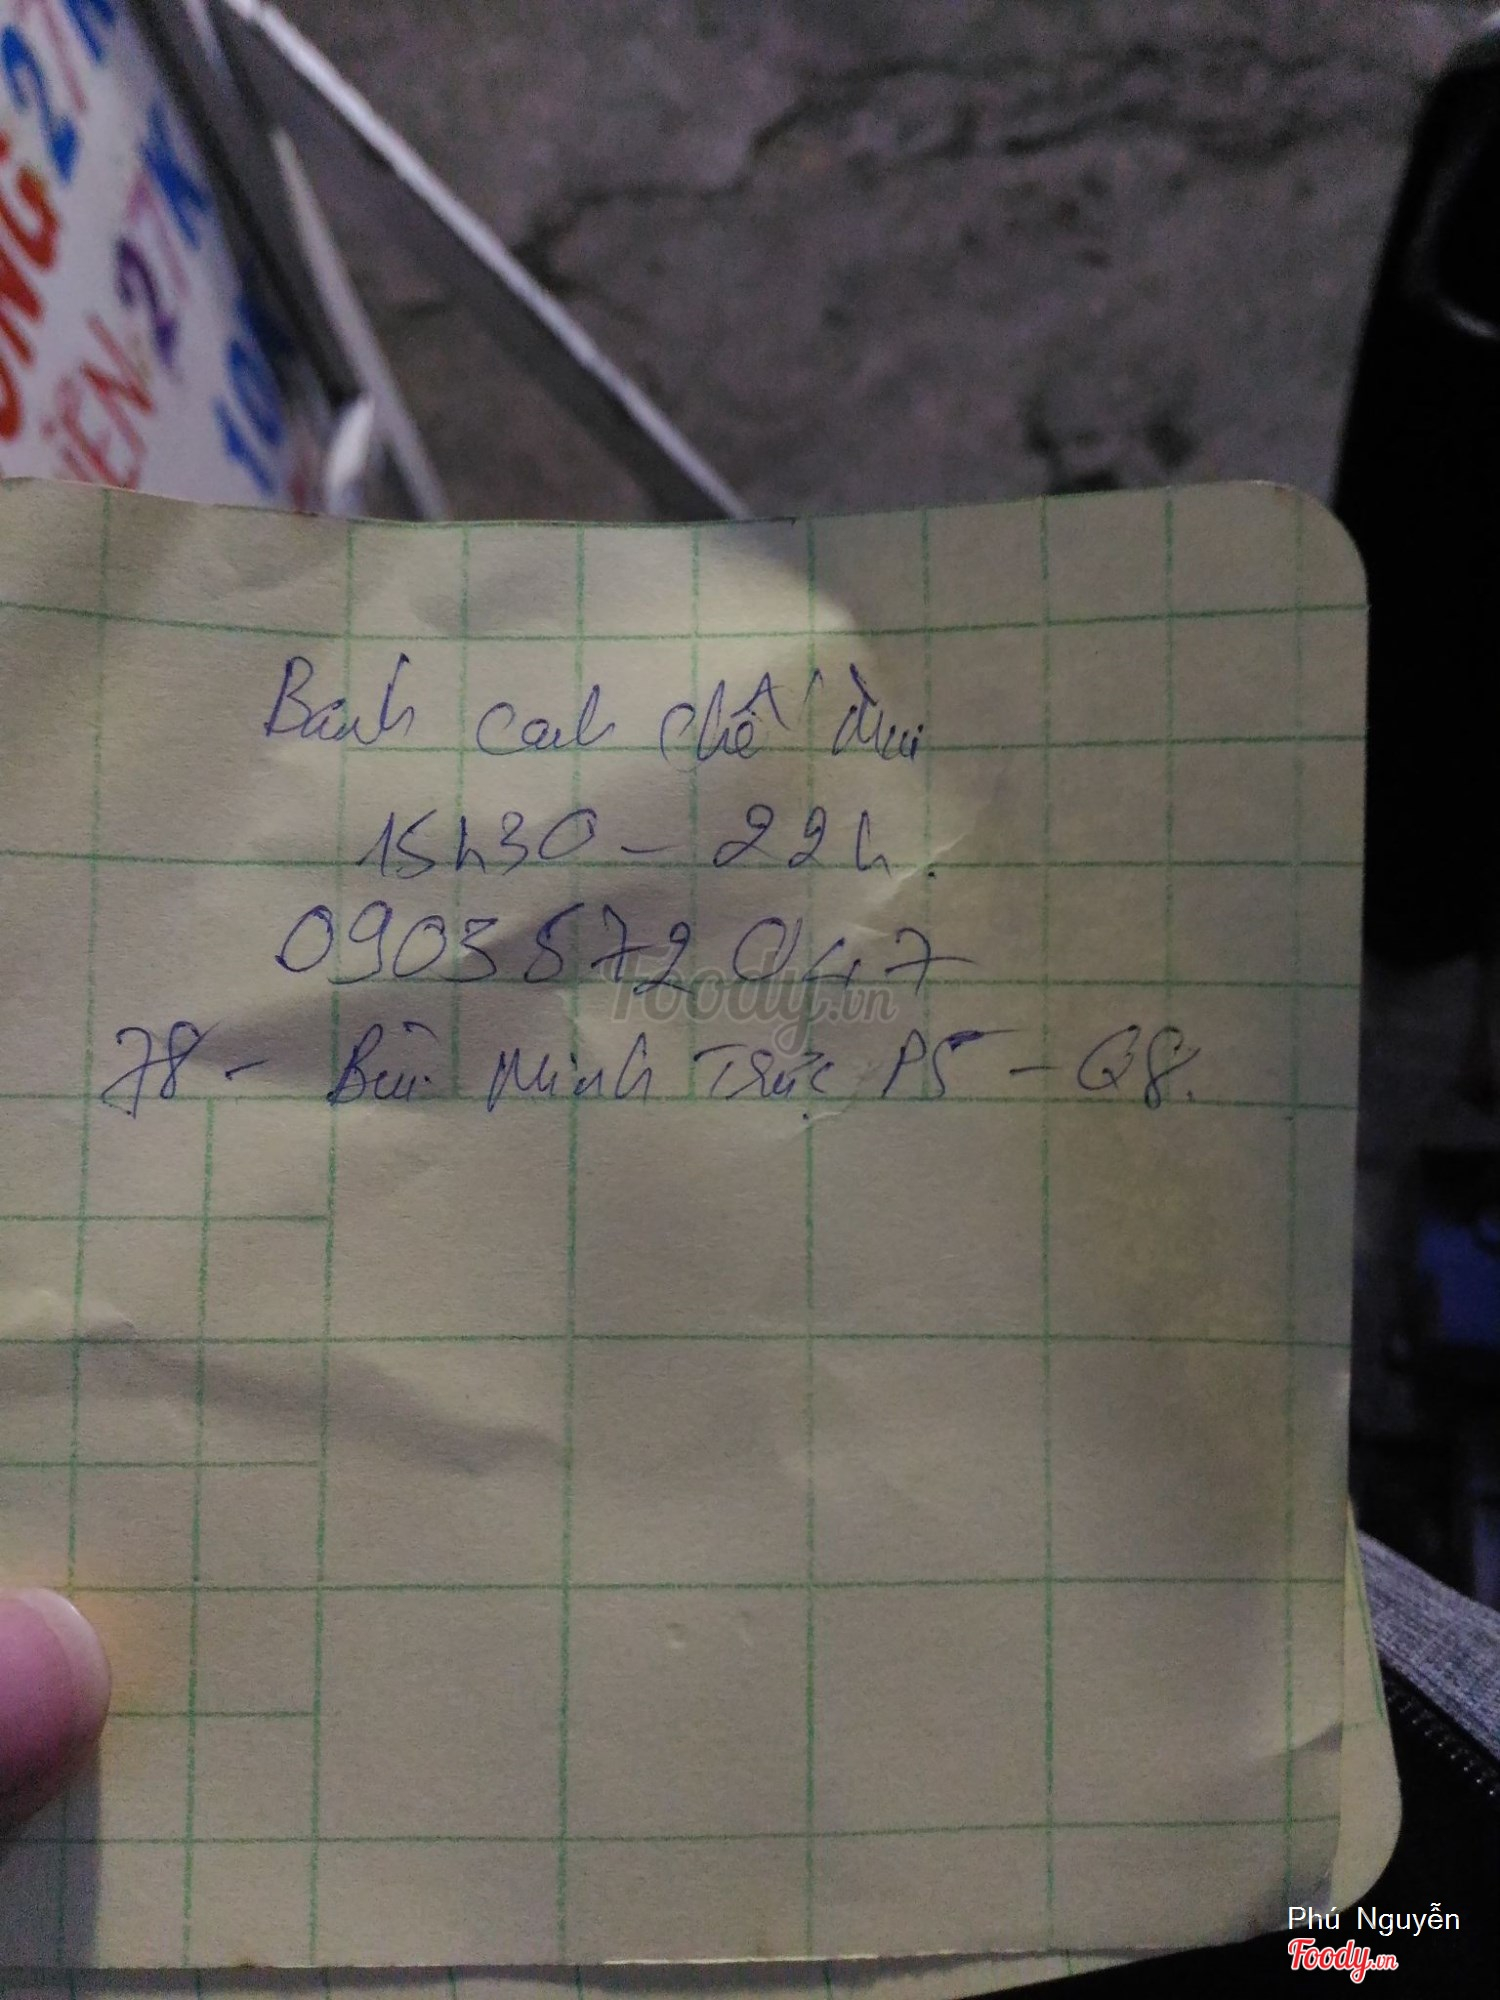 ÔNG 27K
IÊN. 27K
10K
Bánh canh ghẹ
15h30 - 22h.
0903 572 047
78 - Bùi Minh Trực P5 - Q8.
Foody.vn
Phú Nguyễn
Foody.vn